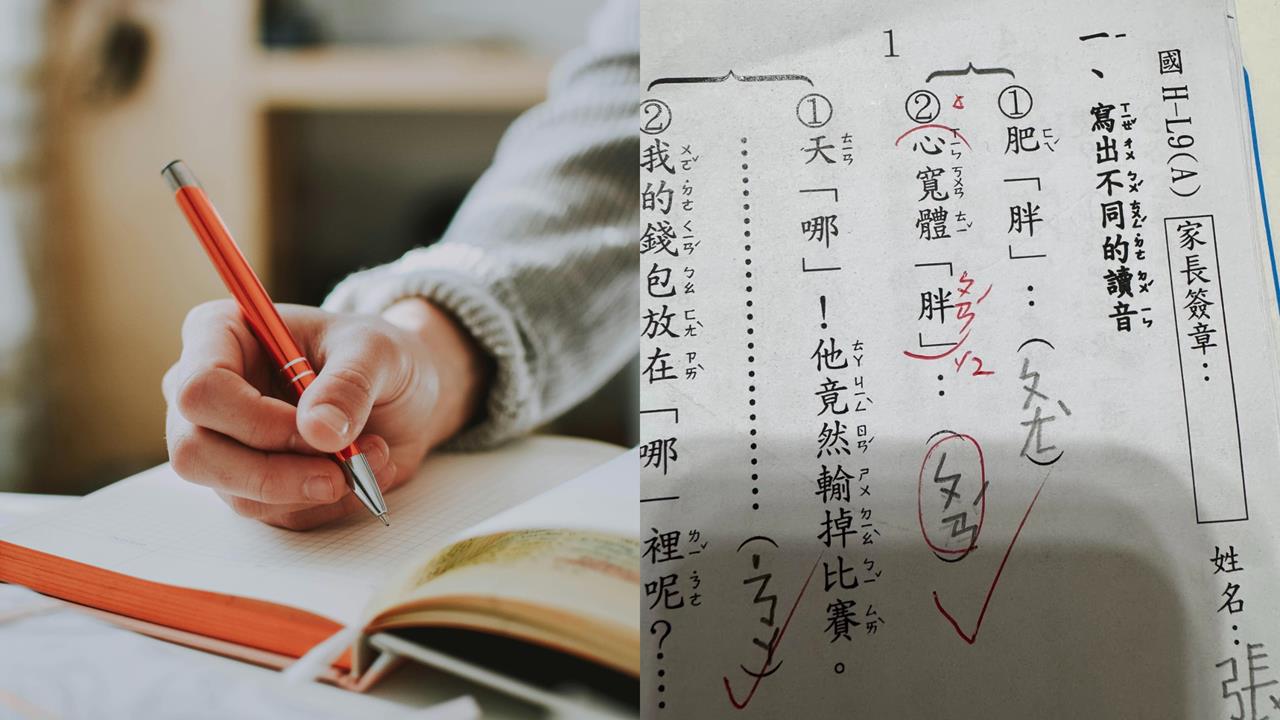 國 H-L9(A) 家長簽章： 姓名：張
一、寫出不同的讀音
1
①肥「胖」：（ㄆㄤˋ）
②心寬體「胖」：（ㄆㄢˊ）
ㄆㄢˊ
①天「哪」！他竟然輸掉比賽。
……（˙ㄋㄚ）
②我的錢包放在「哪」裡呢？……